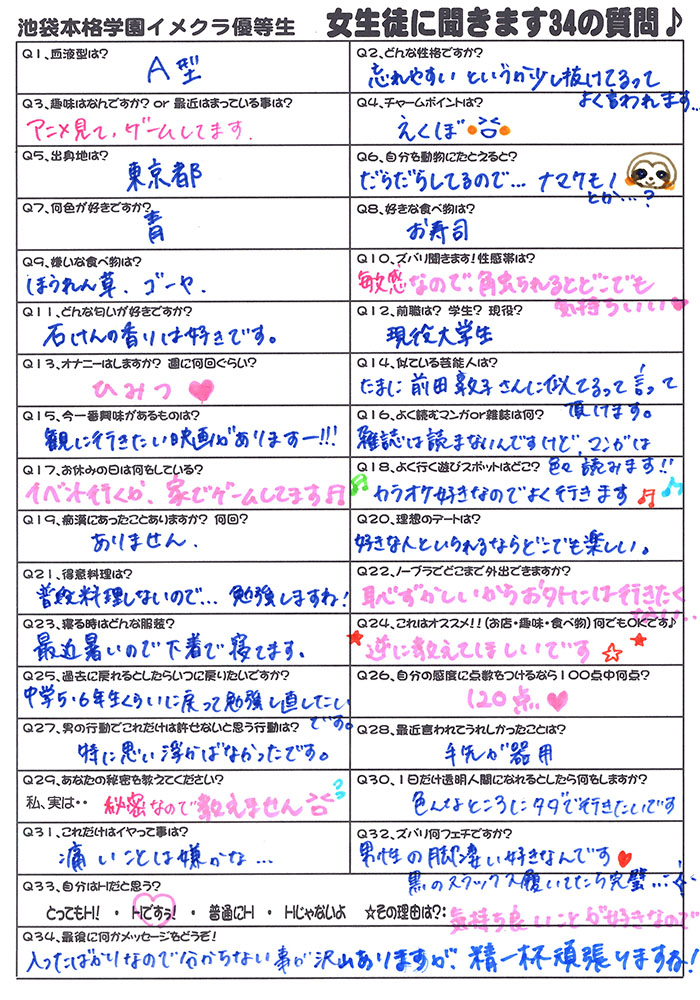 池袋本格学園イメクラ優等生 女生徒に聞きます34の質問♪
Q1、血液型は?
A型
Q2、どんな性格ですか?
忘れやすいというか少し抜けてるって
よく言われます...
Q3、趣味はなんですか? or 最近はまっている事は?
アニメ見て、ゲームしてます.
Q4、チャームポイントは?
えくぼ
Q5、出身地は?
東京都
Q6、自分を動物にたとえると?
だらだらしてるので... ナマケモノ
とか...?
Q7、何色が好きですか?
青
Q8、好きな食べ物は?
お寿司
Q9、嫌いな食べ物は?
ほうれん草、ゴーヤ、
Q10、ズバリ聞きます!性感帯は?
敏感なので、触られるとどこでも
気持ちいい♥
Q11、どんな匂いが好きですか?
石けんの香りは好きです。
Q12、前職は? 学生? 現役?
現役大学生
Q13、オナニーはしますか? 週に何回ぐらい?
ひみつ ♥
Q14、似ている芸能人は?
たまに前田敦子さんに似てるって言って
頂けます。
Q15、今一番興味があるものは?
観に行きたい映画がありますー!!!
Q16、よく読むマンガor雑誌は何?
雑誌は読まないんですけど、マンガは
色々 読みます!!
Q17、お休みの日は何をしている?
イベント行くか、家でゲームしてます♫
Q18、よく行く遊びスポットはどこ?
♫カラオケ好きなのでよく行きます♫♪
Q19、痴漢にあったことありますか? 何回?
ありません.
Q20、理想のデートは?
好きな人といられるならどこでも楽しい。
Q21、得意料理は?
普段料理しないので... 勉強しますね!
Q22、ノーブラでどこまで外出できますか?
恥ずかしいからおソトには行きたく
ない...
Q23、寝る時はどんな服装?
最近暑いので下着で寝てます、
Q24、これはオススメ!!(お店・趣味・食べ物) 何でもOKです♪
★逆に教えてほしいです☆★
Q25、過去に戻れるとしたらいつに戻りたいですか?
中学5・6年生くらいに戻って勉強し直したい
です。
Q26、自分の感度に点数をつけるなら100点中何点?
120点 ♥
Q27、男の行動でこれだけは許せないと思う行動は?
特に思い浮かばなかったです。
Q28、最近言われてうれしかったことは?
手先が器用
Q29、あなたの秘密を教えてください?
私、実は・・ 秘密なので教えません
Q30、1日だけ透明人間になれるとしたら何をしますか?
色んなところにタダで行きたいです
Q31、これだけはイヤって事は?
痛いことは嫌かな...
Q32、ズバリ何フェチですか?
男性の脚凄い好きなんです♥
黒のスラックス履いてたら完璧...
Q33、自分はHだと思う?
とってもH! ・ Hですぅ! ・ 普通にH ・ Hじゃないよ ☆その理由は?: 気持ち良いことが好きなので
Q34、最後に何かメッセージをどうぞ!
入ったばかりなので分からない事が沢山ありますが、精一杯頑張りますね!